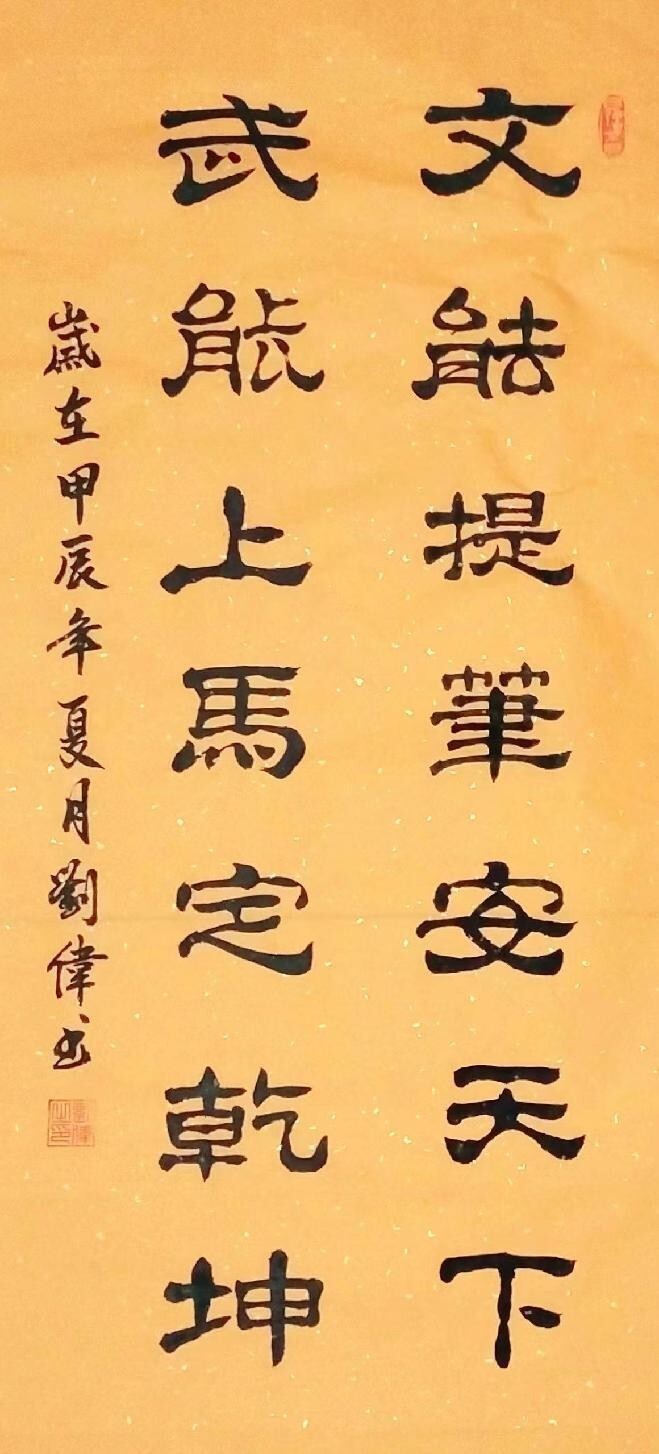 文能提筆安天下
武能上馬定乾坤
歲在甲辰年夏月劉偉書